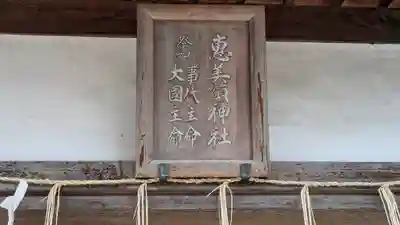 恵美須神社
祭神
事代主命
大国主命